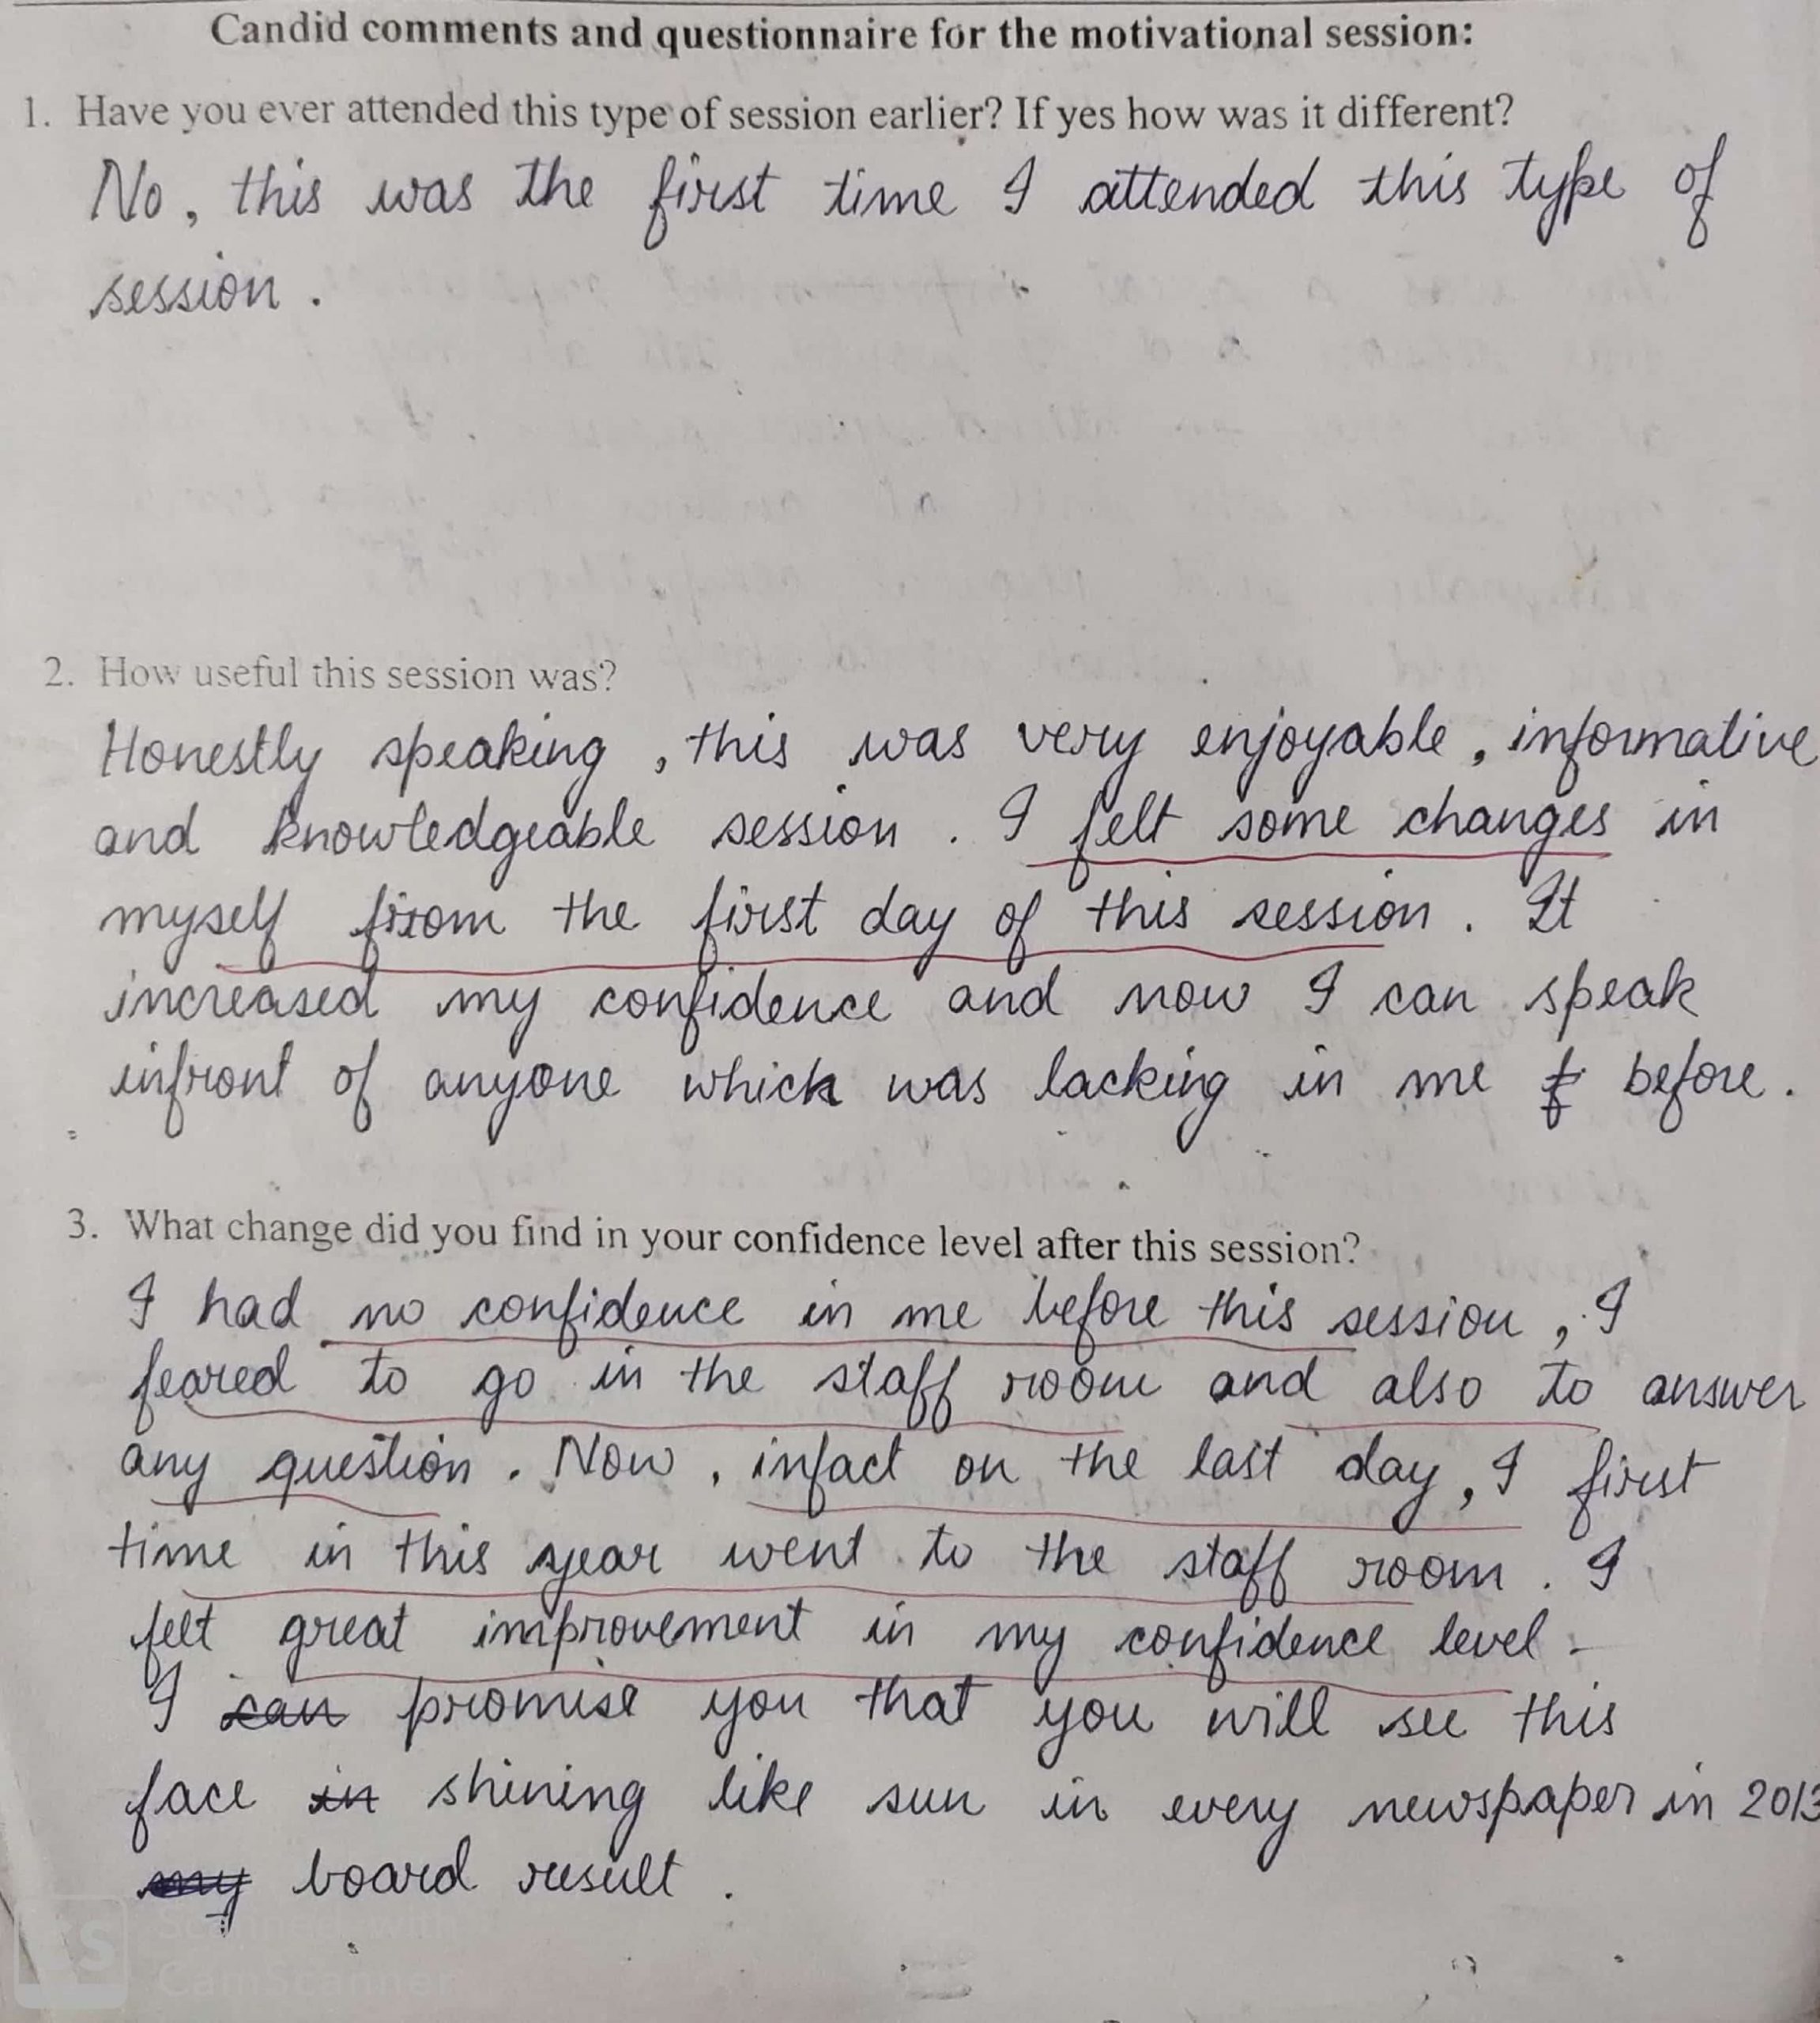 Candid comments and questionnaire for the motivational session:
1. Have you ever attended this type of session earlier? If yes how was it different?
No, this was the first time I attended this type of
session.
2. How useful this session was?
Honestly speaking, this was very enjoyable, informative
and knowledgeable session. I felt some changes in
myself from the first day of this session. It
increased my confidence and now I can speak
infront of anyone which was lacking in me before.
3. What change did you find in your confidence level after this session?
I had no confidence in me before this session, I
feared to go in the staff room and also to answer
any question. Now, infact on the last day, I first
time in this year went to the staff room. I
felt great improvement in my confidence level.
I can promise you that you will see this
face in shining like sun in every newspaper in 2013
my board result.
CS
Scanned with
CamScanner